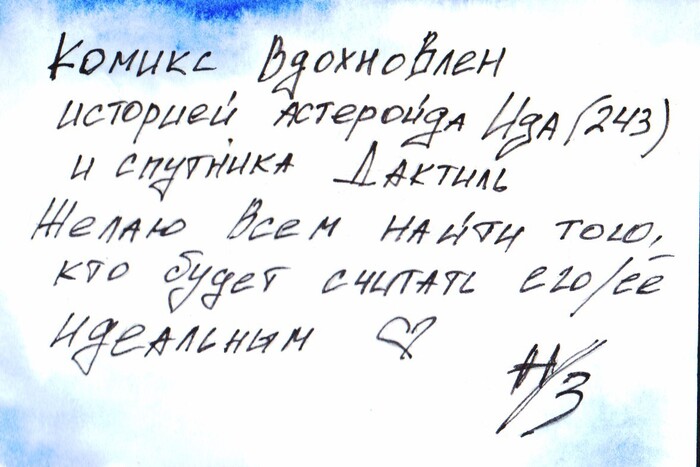 Комикс вдохновлен
историей астеройда Ида (243)
и спутника Дактиль
Желаю всем найти того,
кто будет считать его/её
идеальным ♡
Н/З